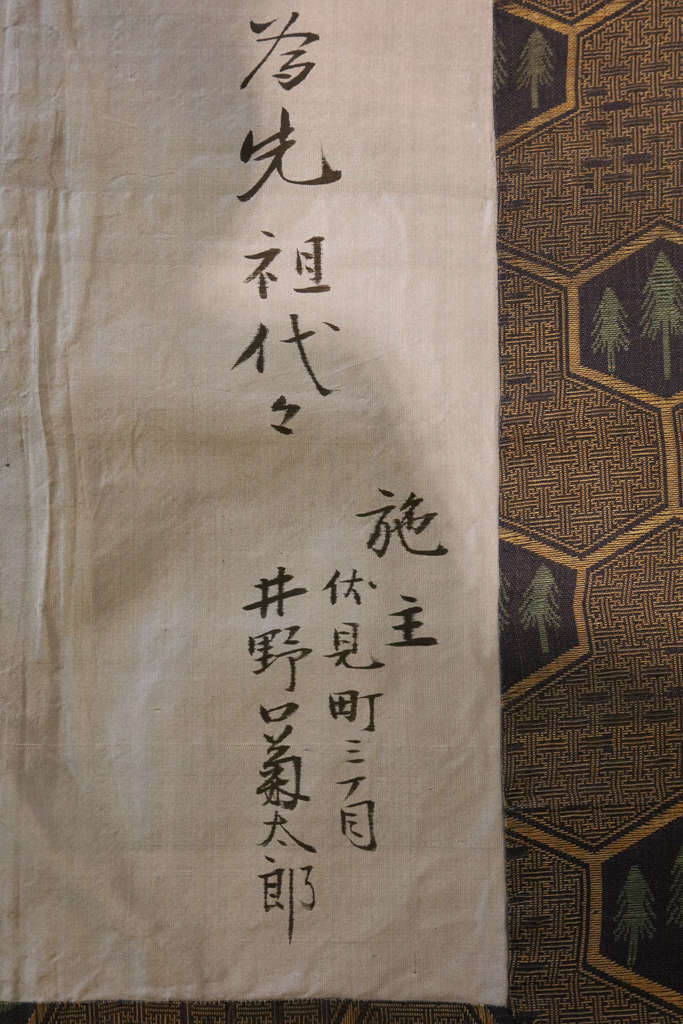 為先祖代々
施主
伏見町三丁目
井野口菊太郎